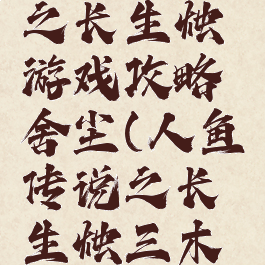 之长生烛
游戏攻略
舍尘(人鱼
传说之长
生烛三木